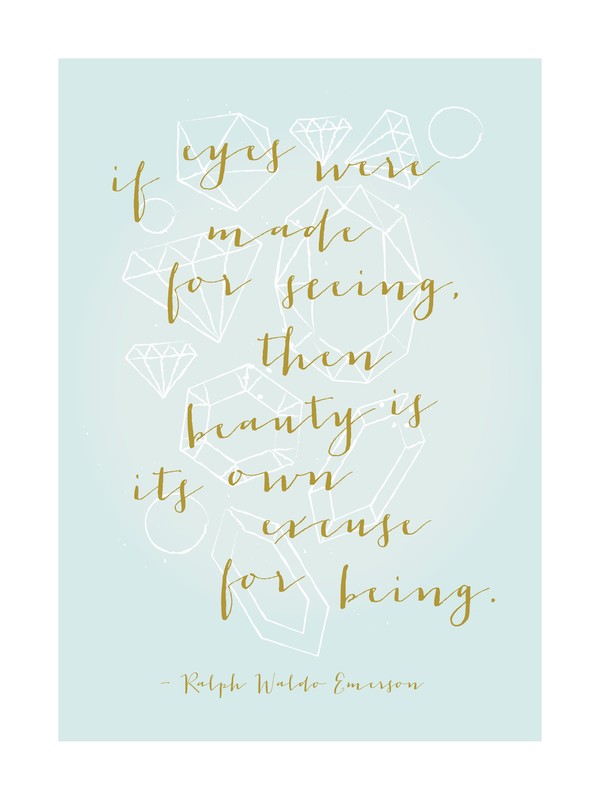 if eyes were
made
for seeing,
then
beauty is
its own
excuse
for being.
- Ralph Waldo Emerson